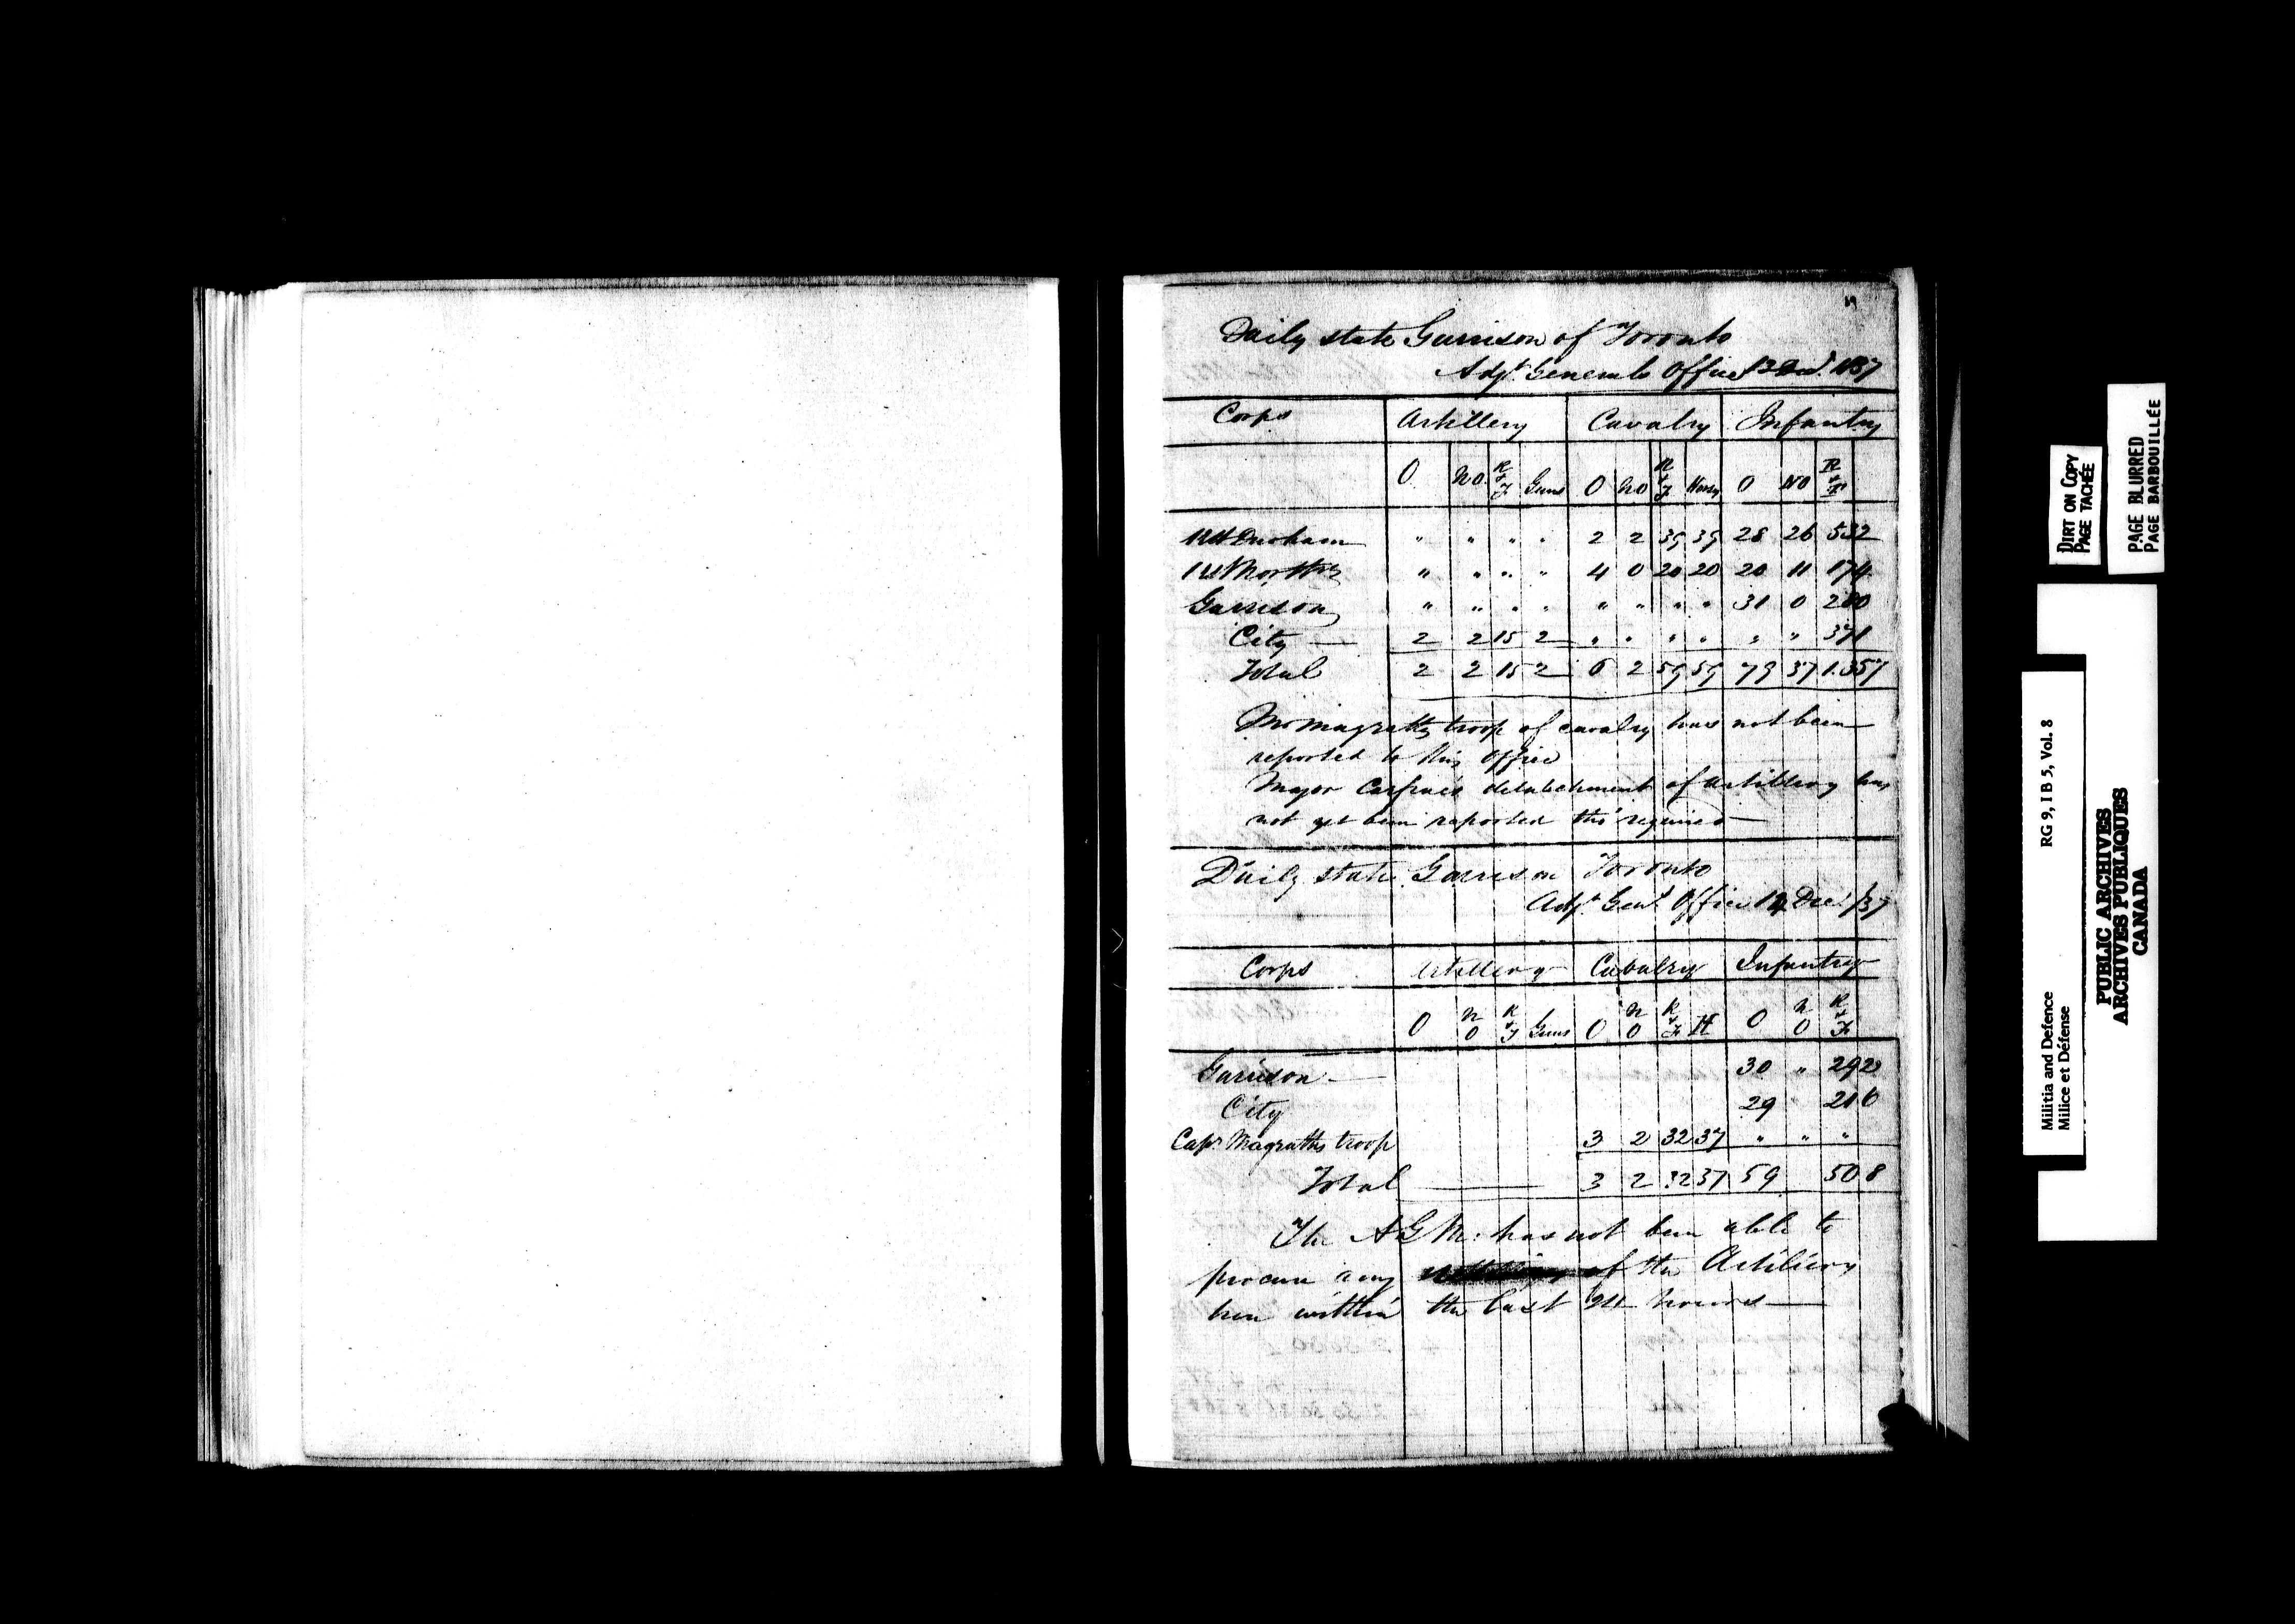 Daily state Garrison of Toronto
Adjt. Generals Office 13 Decr. 1837
Corps Artillery Cavalry Infantry
O N O R & F Guns O N O R & F Horses O N O R & F
1st Durham " " " " 2 2 39 39 28 26 532
1st " " " " 4 0 20 20 20 11 174
Garrison " " " " " " " " 31 0 280
City 2 2 15 2 " " " " " " 371
Total 2 2 15 2 6 2 59 59 79 37 1.357
Mr Magraths troop of cavalry has not been
reported to this office
Major Carfrae's detachment of artillery has
not yet been reported tho' required
Daily state Garrison Toronto
Adjt. Genl. Office 14 Decr. /37
Corps Artillery Cavalry Infantry
O N O R & F Guns O N O R & F H O N O R & F
Garrison 30 " 292
City 29 " 216
Capt. Magraths troop 3 2 32 37 " " "
Total 3 2 32 37 59 508
The A G M: has not been able to
procure any of the Artillery
here within the last 24 hours
DIRT ON COPY
PAGE TACHÉE
PAGE BLURRED
PAGE BARBOUILLÉE
RG 9, I B 5, Vol. 8
Militia and Defence
Milice et Défense
PUBLIC ARCHIVES
ARCHIVES PUBLIQUES
CANADA